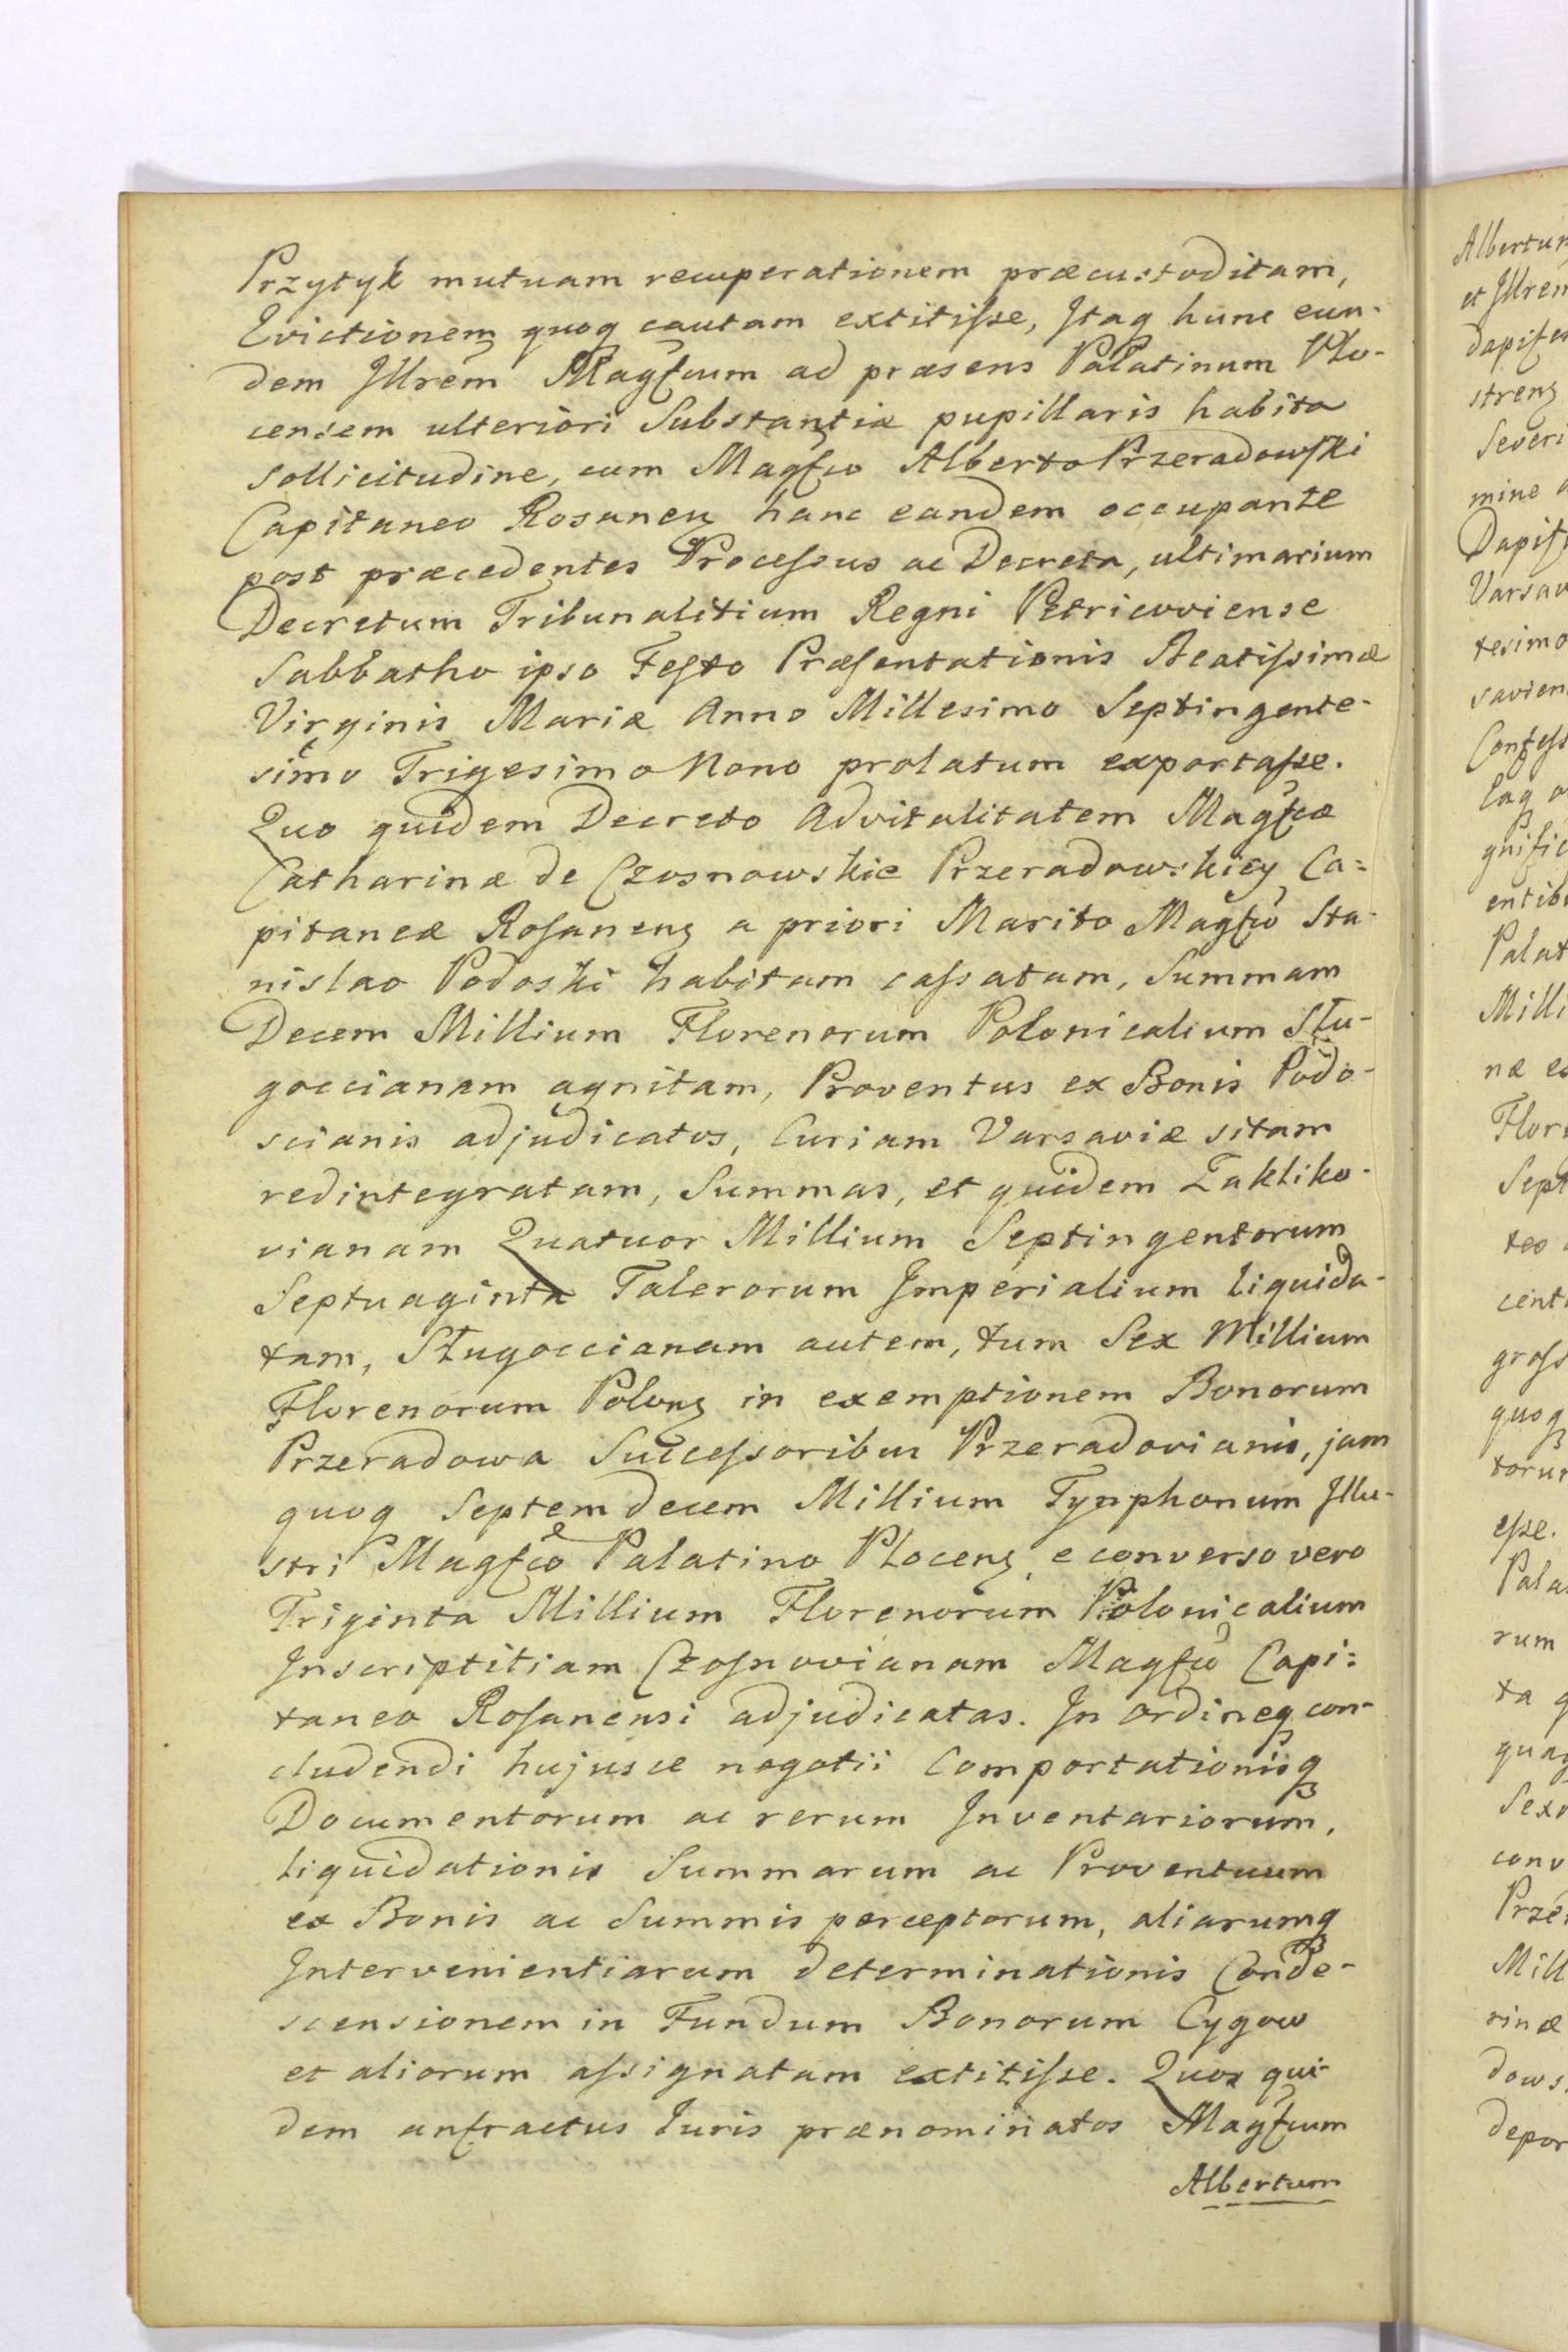 Przytyk mutuam recuperationem præcustoditam,
Evictionem quoq cautam extitiſse, Itaq hunc eun-
dem Illrem Magfcum ad præsens Palatinum Plo-
censem ulteriori Substantiæ pupillaris habita
sollicitudine, cum Magfco Alberto Przeradowſki
Capitaneo Rosanen hanc eandem occupante
post præcedentes Proceſsus ac Decreta, ultimarium
Decretum Tribunalitium Regni Petricoviense
Sabbatho ipso Feſto Præſentationis Beatiſsimæ
Virginis Mariæ Anno Millesimo Septingente-
simo Trigesimo Nono prolatum exportaſse.
Quo quidem Decreto Advitalitatem Magfcæ
Catharinæ de Czosnowskie Przeradowskiey Ca=
pitaneæ Roſanen a priori Marito Magfco Sta-
nislao Podoski habitam caſsatam, Summam
Decem Millium Florenorum Polonicalium Słu-
goccianam agnitam, Proventus ex Bonis Podo-
scianis adjudicatos, Curiam Varsaviæ sitam
redintegratam, Summas, et quidem Zakliko-
vianam Quatuor Millium Septingentorum
Septuaginta Talerorum Imperialium liquida-
tam, Sługoccianam autem, tum Sex Millium
Florenorum Polon in exemptionem Bonorum
Przeradowa Succeſsoribus Przeradovianis, jam
quoq Septemdecem Millium Tynphonum Illu-
stri Magfco Palatino Płocen, e converso vero
Triginta Millium Florenorum Polonicalium
Inscriptitiam Czoſnovianam Magfco Capi=
taneo Roſanensi adjudicatas. In ordineq con-
cludendi hujusce negotii Comportationisq
Documentorum ac rerum Inventariorum,
liquidationis Summarum ac Proventuum
ex Bonis ac Summis perceptorum, aliarumq
Intervenientiarum determinationis Conde-
scensionem in Fundum Bonorum Cygow
et aliorum aſsignatam extitiſse. Quos qui-
dem anfractus Juris prænominatos Magfcum
Albertum